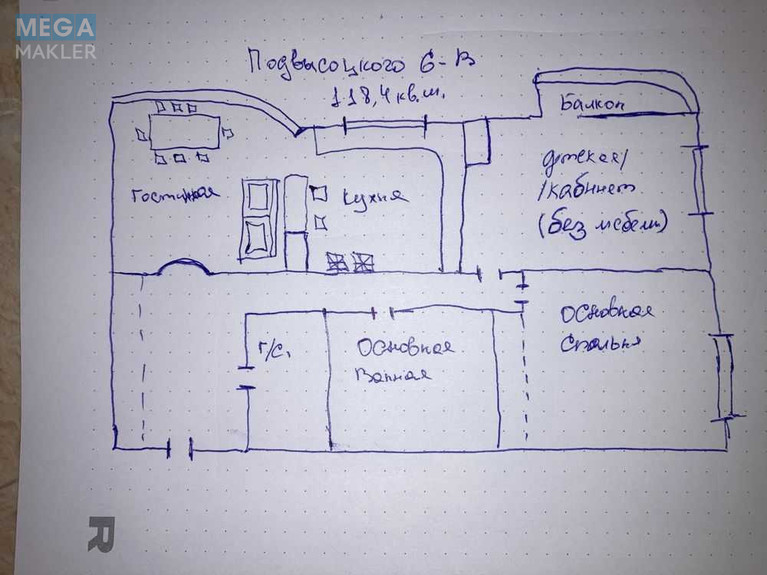 MEGA
MAKLER
Подвысоцкого 6-В
118,4 кв.м.
Балкон
Гостинная
Кухня
детская/
/кабинет
(без мебели)
г/с.
Основная
Ванная
Основная
Спальня
R